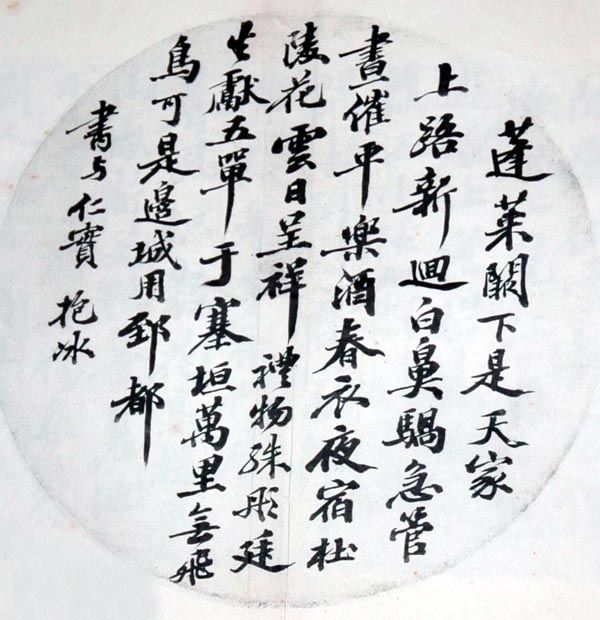 蓬萊闕下是天家
上路新迴白鼻騧急管
晝催平樂酒春衣夜宿杜
陵花雲日呈祥禮物殊彤廷
生獻五單于塞垣萬里無飛
鳥可是邊城用郅都
書与仁寶 抱冰